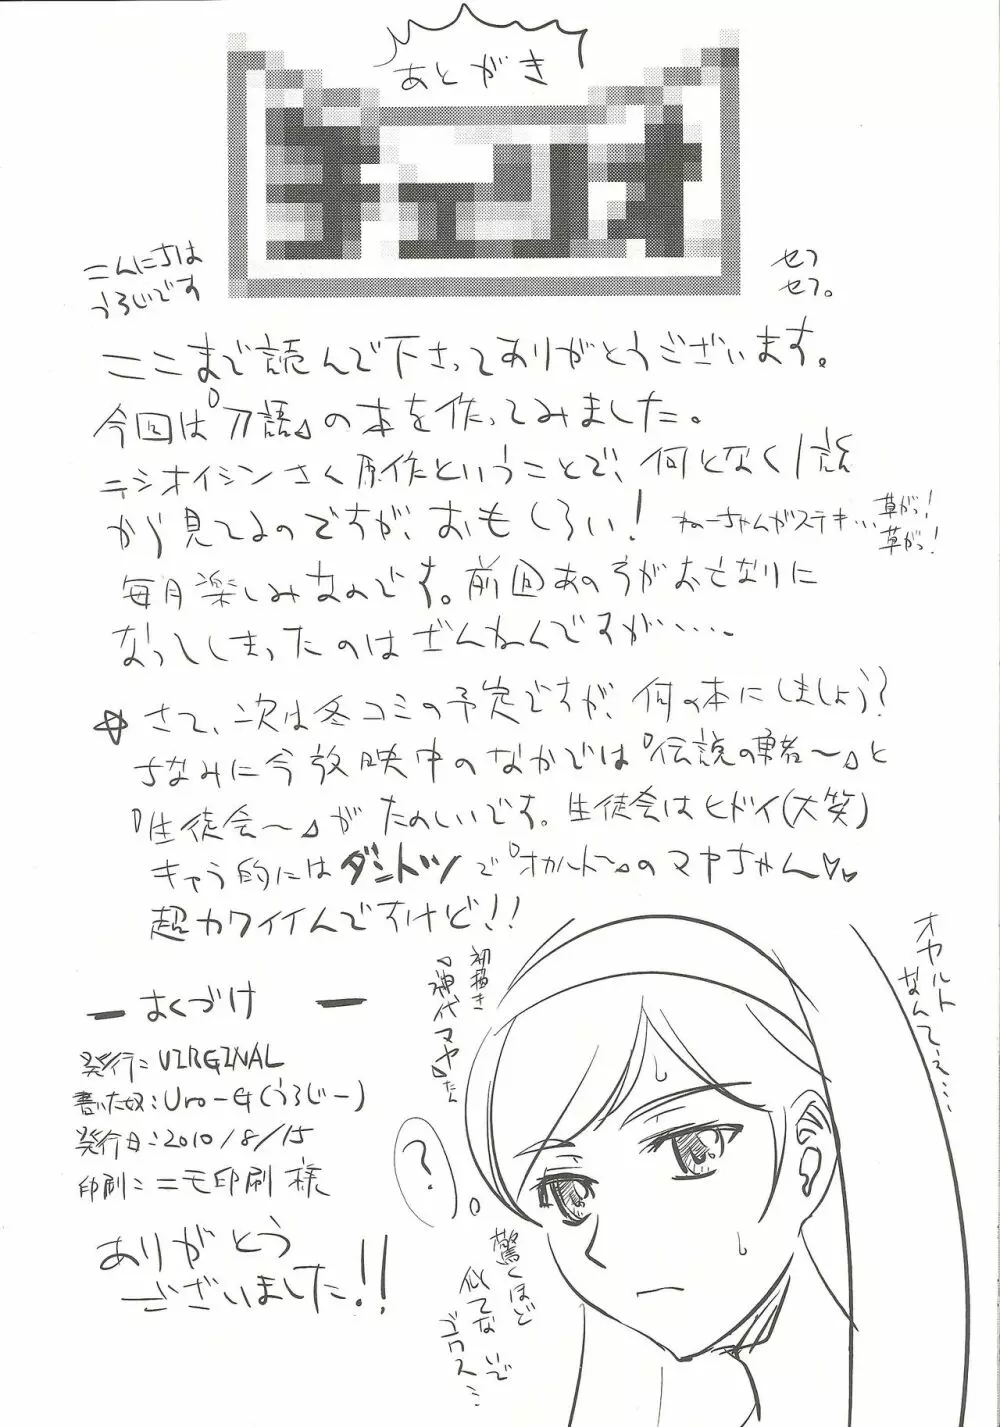 あとがき
チェリオ
こんにちは
うろじです
セフ
セフ。
ここまで読んで下さってありがとうございます。
今回は『刀語』の本を作ってみました。
ニシオイシンさん原作ということで、何となく1話
から見てるのですが、おもしろい!
ねーちゃんがステキ…
草がっ!
草がっ!
毎月楽しみなのです。前回あの子がおとなりに
なってしまったのはざんねんですが・・・・
☆さて、次は冬コミの予定ですが、何の本にしましょう?
ちなみに今放映中のなかでは『伝説の勇者〜』と
『生徒会〜』がたのしいです。生徒会はヒドイ(大笑)
キャラ的にはダントツで『オカルト〜』のマヤちゃん♡♡
超カワイイんですけど!!
初描き
『神代マヤ』たん
オカルト
なんてぇ…
ー はくづけ ー
発行:VIRGINAL
書いた奴:Uro-G(うろじー)
発行日:2010/8/15
印刷:ニモ印刷 様
ありがとう
ございました!!
?
驚くほど
似てないで
ゴワス…